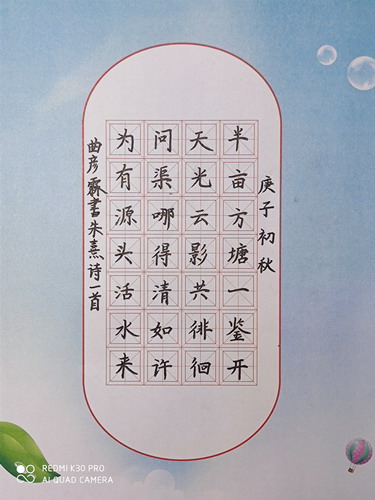 庚子初秋
半亩方塘一鉴开
天光云影共徘徊
问渠哪得清如许
为有源头活水来
曲彦霖书朱熹诗一首
REDMI K30 PRO
AI QUAD CAMERA